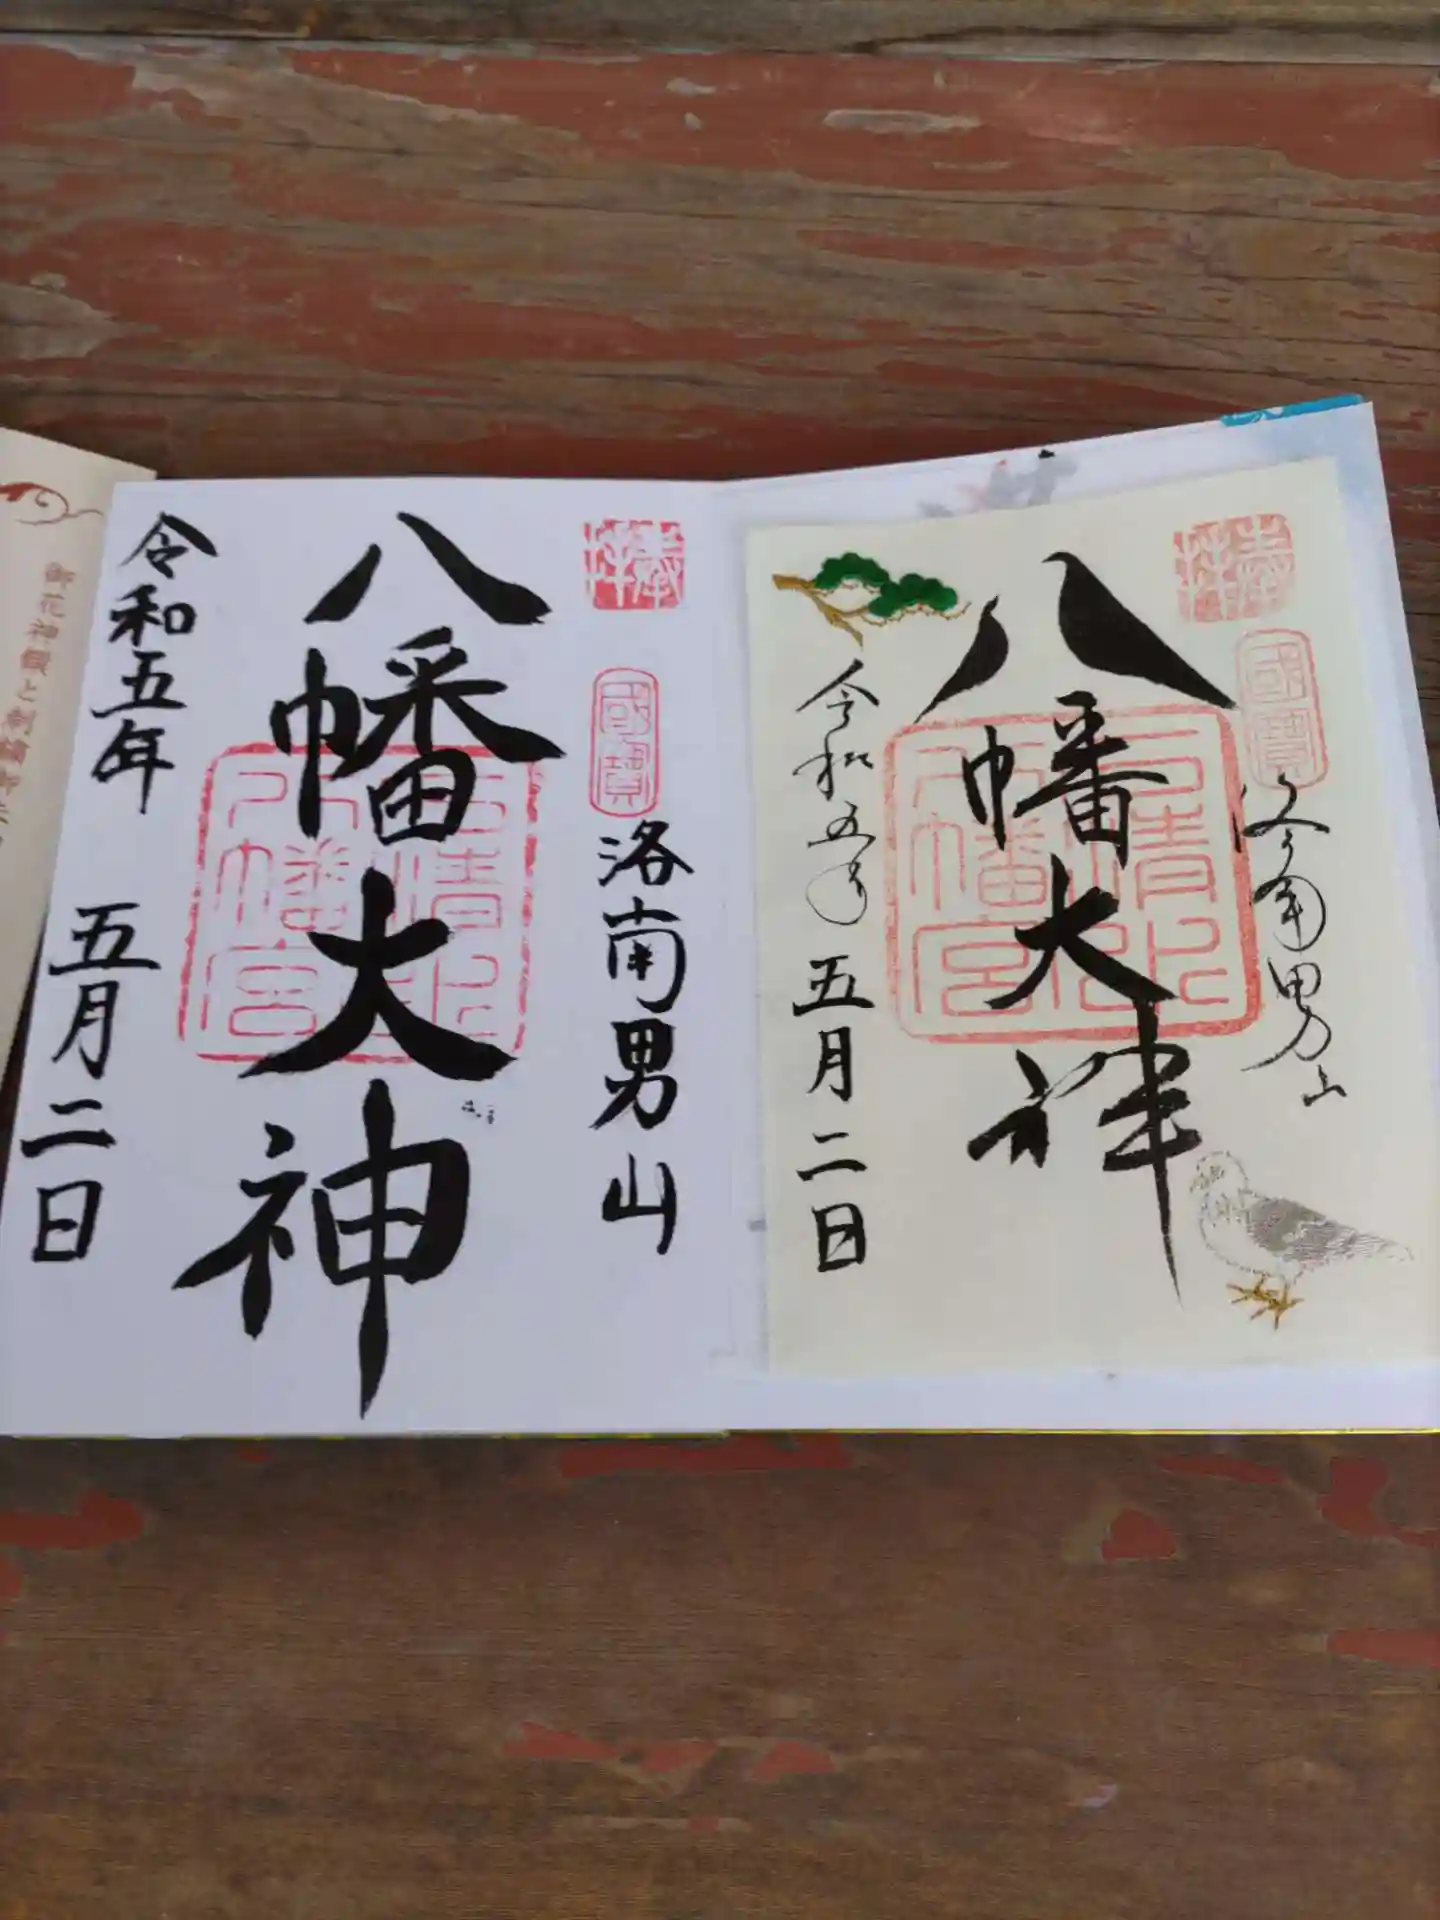 奉拝
國寶
洛南男山
八幡大神
石清水八幡宮
令和五年 五月二日
奉拝
國寶
洛南男山
八幡大神
石清水八幡宮
令和五年 五月二日